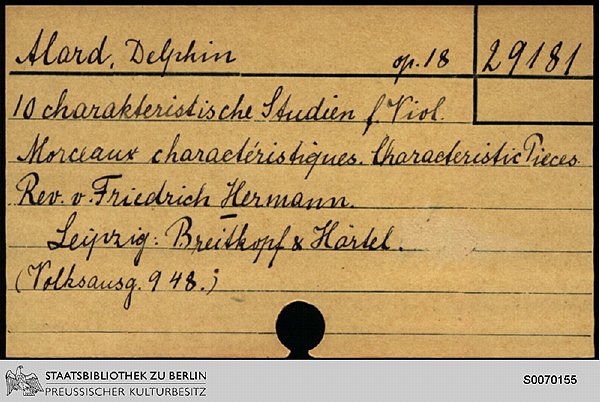 Alard, Delphin op. 18 29181
10 charakteristische Studien f. Viol.
Morceaux charactéristiques. Characteristic Pieces
Rev. v. Friedrich Hermann.
Leipzig: Breitkopf & Härtel.
(Volksausg. 948.)
STAATSBIBLIOTHEK ZU BERLIN
PREUSSISCHER KULTURBESITZ
S0070155